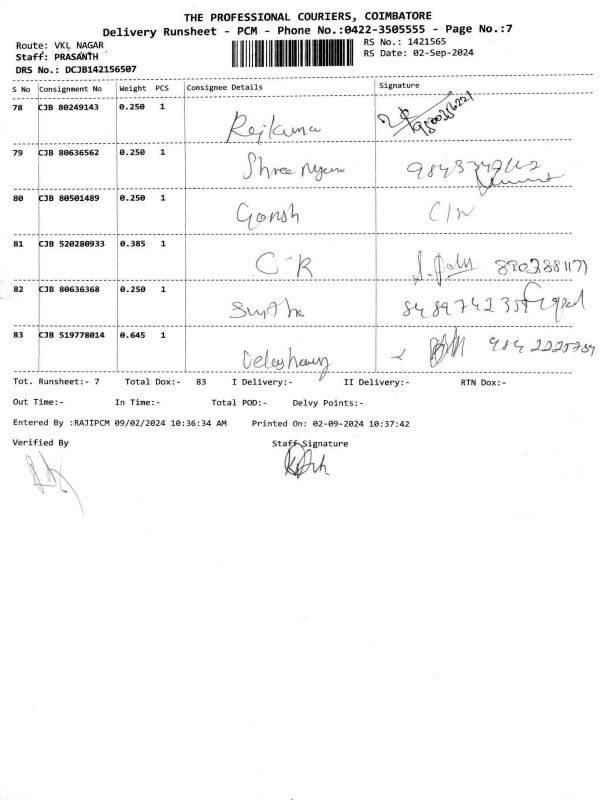 THE PROFESSIONAL COURIERS, COIMBATORE
Delivery Runsheet - PCM - Phone No.:0422-3505555 - Page No.:7
Route: VKL NAGAR
RS No.: 1421565
Staff: PRASANTH
RS Date: 02-Sep-2024
DRS No.: DCJB142156507
S No Consignment No Weight PCS Consignee Details Signature
78 CJB 80249143 0.250 1
Rajkuma
79 CJB 80636562 0.250 1
Shree
80 CJB 80501489 0.250 1
Gansh
81 CJB 520280933 0.385 1
C-R
82 CJB 80636368 0.250 1
83 CJB 519778014 0.645 1
Tot. Runsheet:- 7 Total Dox:- 83 I Delivery:- II Delivery:- RTN Dox:-
Out Time:- In Time:- Total POD:- Delvy Points:-
Entered By :RAJIPCM 09/02/2024 10:36:34 AM Printed On: 02-09-2024 10:37:42
Verified By Staff Signature